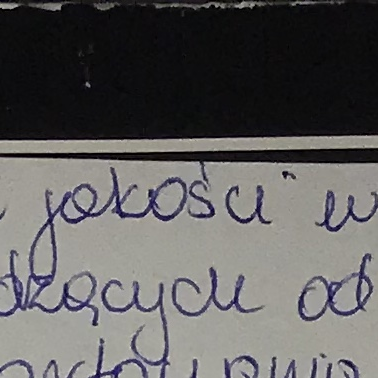 jakości" w
dzących od